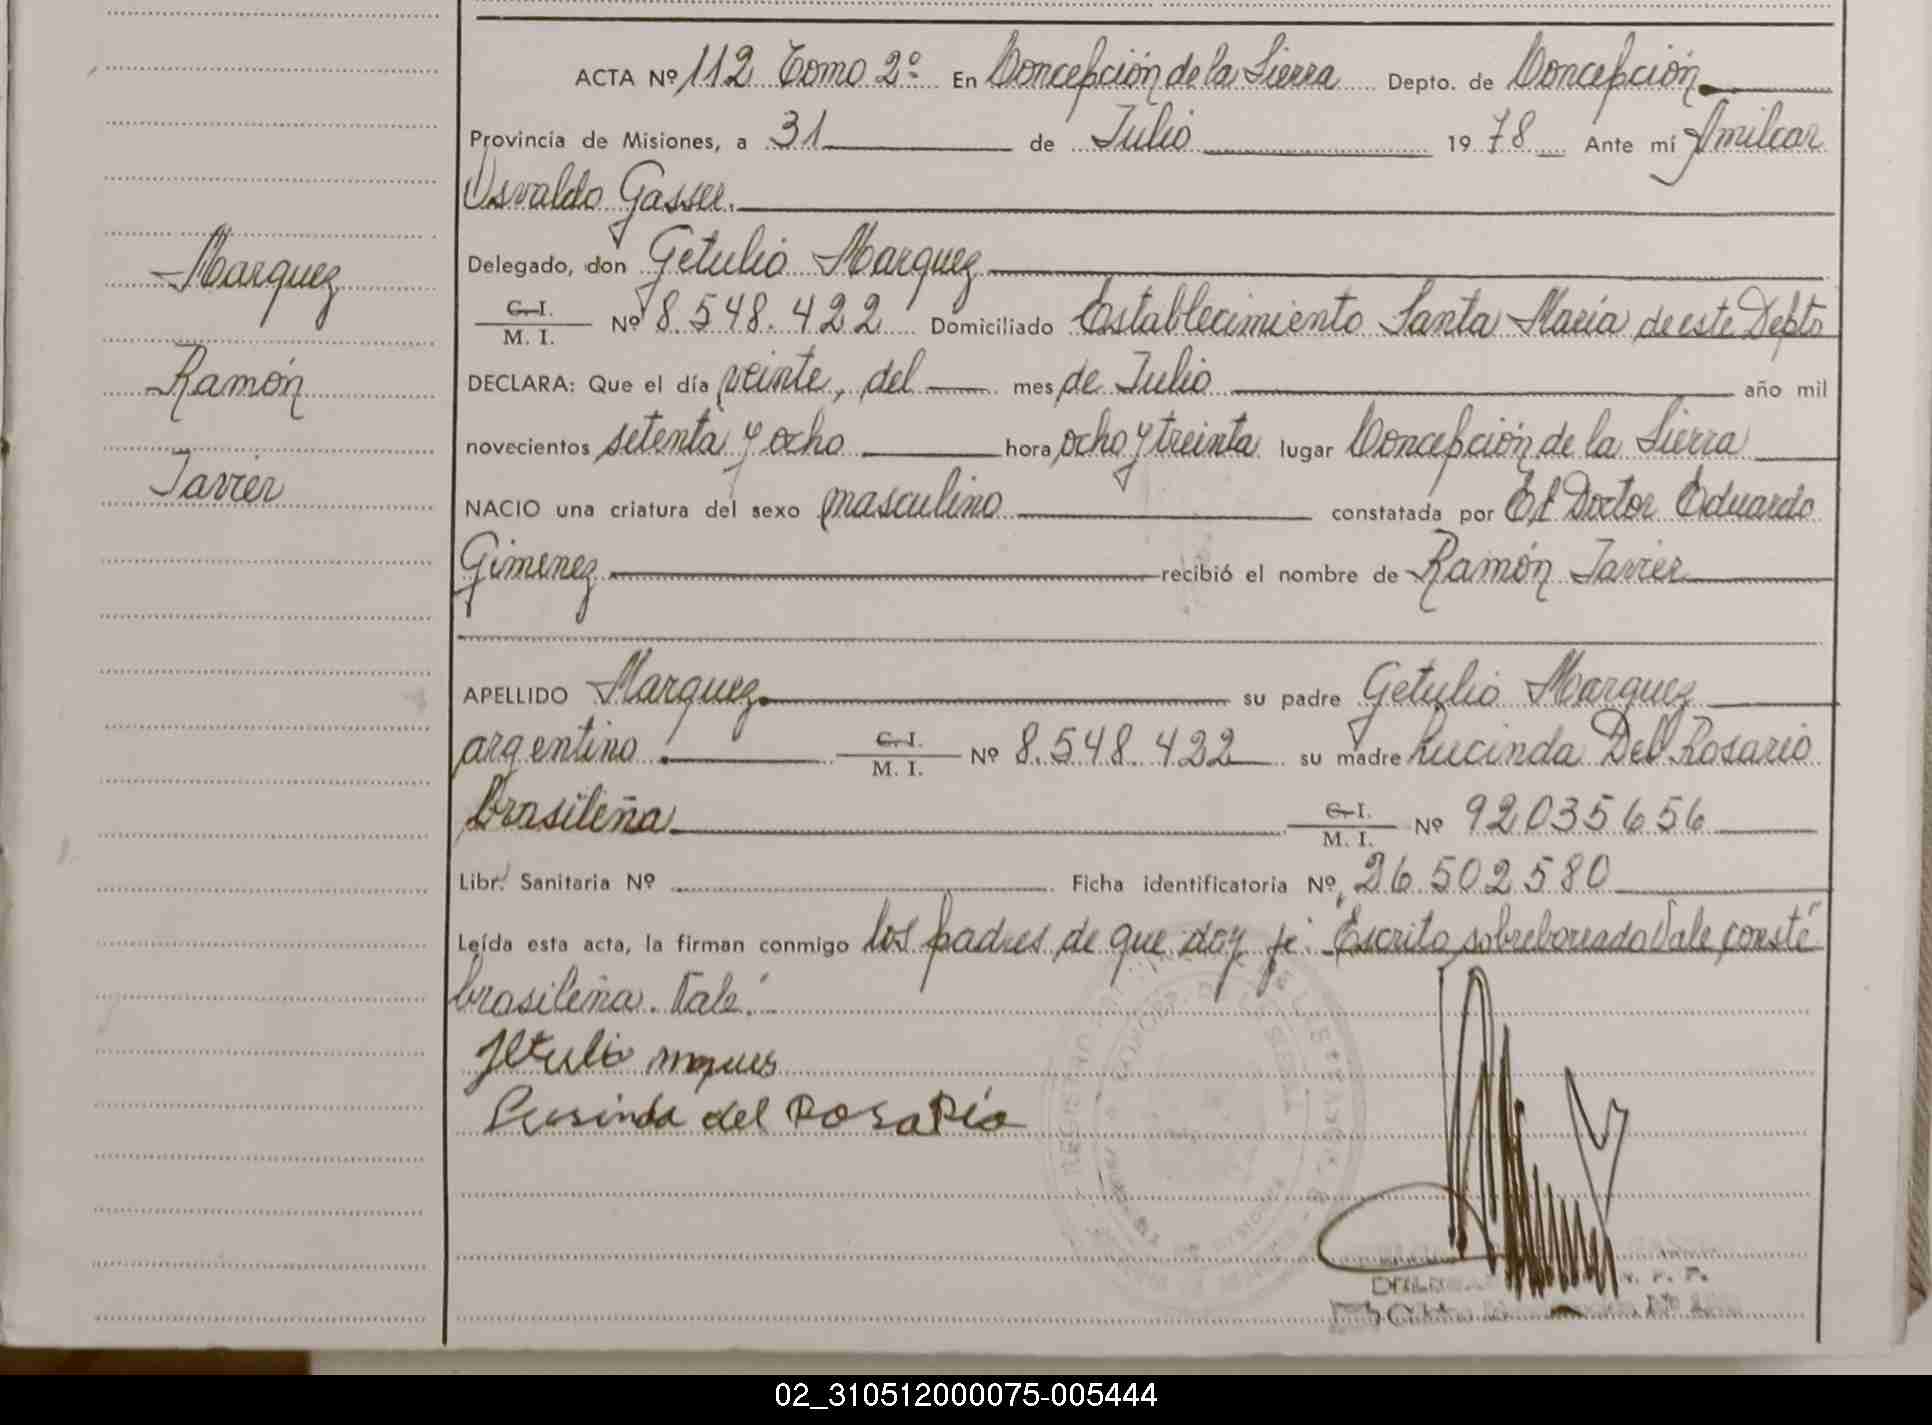 Marquez
Ramón
Javier
ACTA Nº 112 Tomo 2º En Concepción de la Sierra Depto. de Concepción
Provincia de Misiones, a 31 de Julio 1978 Ante mí Amilcar
Osvaldo Gasser.
Delegado, don Getulio Marquez
C. I.
M. I. Nº 8.548.422 Domiciliado Establecimiento Santa María de este Depto
DECLARA: Que el día veinte, del mes de Julio año mil
novecientos setenta y ocho hora ocho y treinta lugar Concepción de la Sierra
NACIO una criatura del sexo masculino constatada por El Doctor Eduardo
Gimenez recibió el nombre de Ramón Javier
APELLIDO Marquez su padre Getulio Marquez
argentino C. I.
M. I. Nº 8.548.422 su madre Lucinda Del Rosario
brasileña C. I.
M. I. Nº 92035656
Libr. Sanitaria Nº Ficha identificatoria Nº 26.502.580
Leída esta acta, la firman conmigo los padres de que doy fé. "Escrito sobreborrado Vale conste"
brasileña. Vale.
Getulio
Lusinda del Rosario
02_310512000075-005444